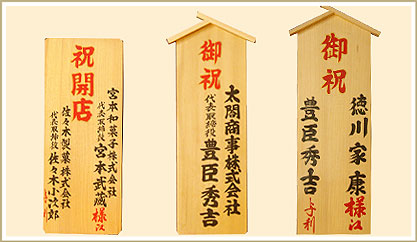 祝開店
宮本和菓子株式会社
代表取締役 宮本武蔵様江
佐々木製菓株式会社
代表取締役 佐々木小次郎
御祝
太閤商事株式会社
代表取締役 豊臣秀吉
御祝
徳川家康様江
豊臣秀吉より